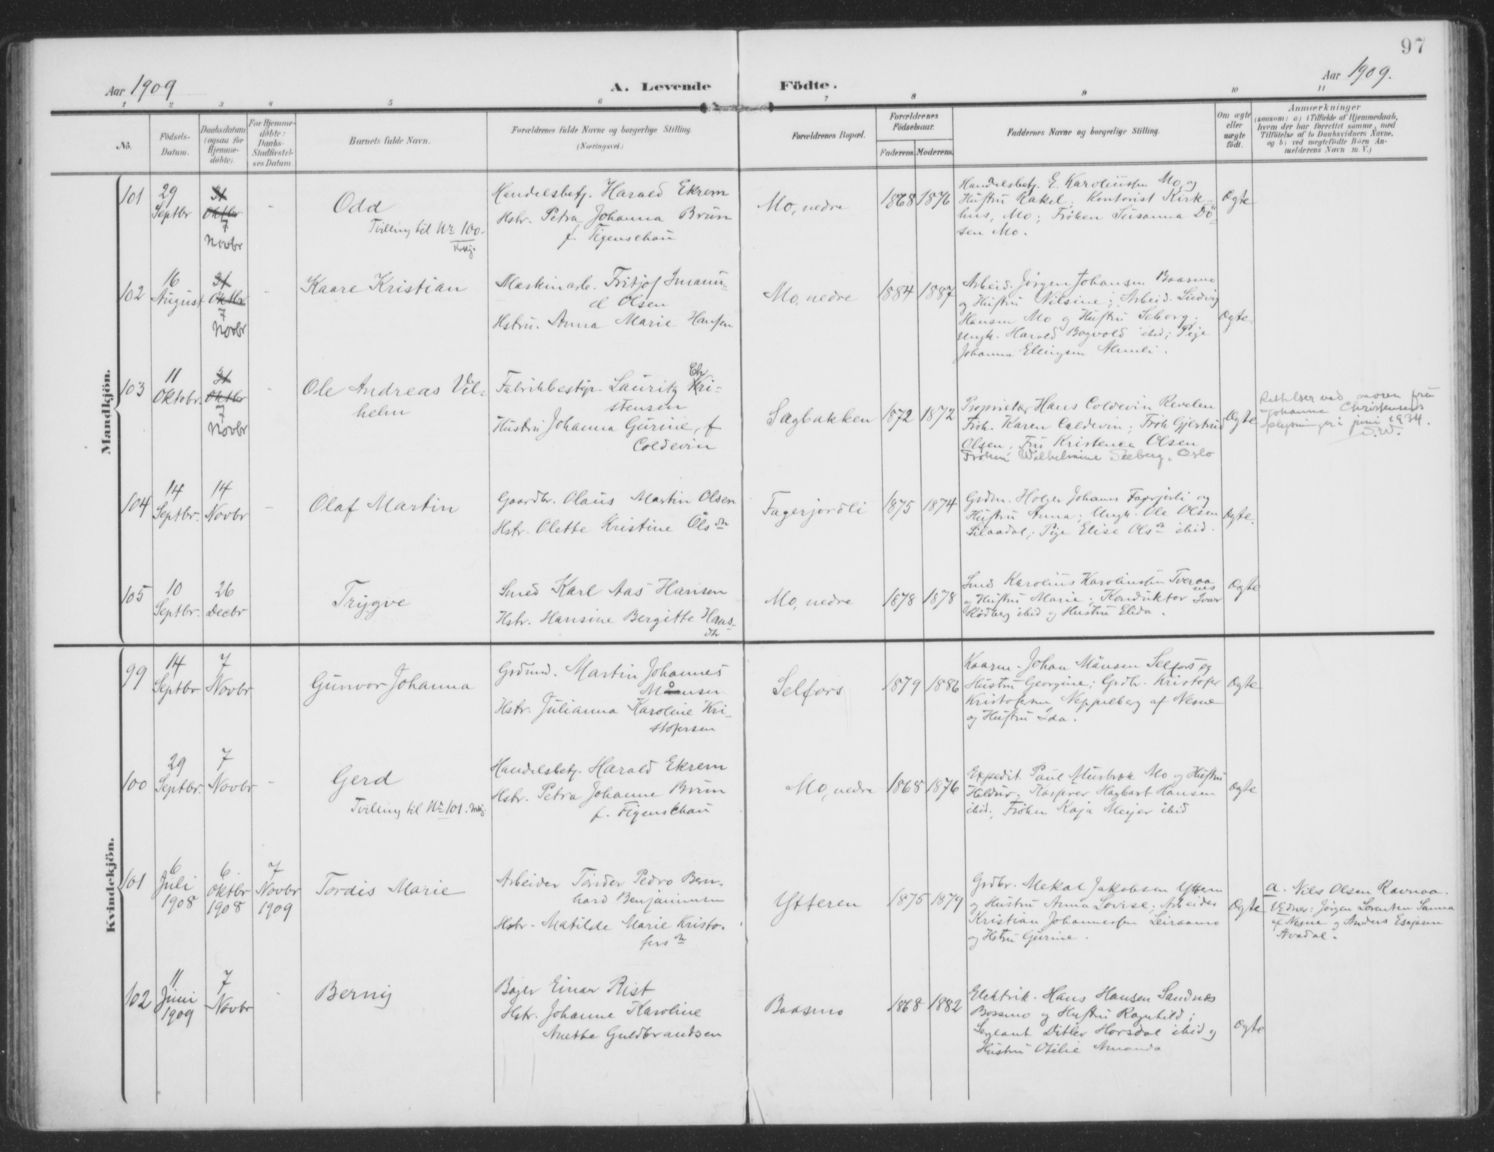 97
Aar 1909
A. Levende
Födte.
Aar 1909.
1 2 3 4 5 6 7 8 9 10 11
No.
Födsels-
Datum.
Daabsdatum
(ogsaa for
Hjemme-
döbte)
For Hjemme-
döbte:
Daabs-
Stadfæstel-
ses Datum.
Barnets fulde Navn.
Forældrenes fulde Navne og borgerlige Stilling
(Næringsvei.)
Forældrenes Bopæl.
Forældrenes
Födselsaar.
Faderens. Moderens.
Faddernes Navne og borgerlige Stilling.
Om ægte
eller
uægte
födt.
Anmærkninger
Mandkjön.
101
29
Septbr
31
Oktbr
7
Novbr
Odd
Tvilling til No 100.
Handelsbetj. Harald Ekrem
Hstr. Petra Johanna Brun
f. Figenschau
Mo, nedre
1868 1876
Handelsbetj. E. Karoliussen Mo, og
Hustru Rakel; Kontorist Kirk-
hus, Mo; Frøken Susanna
sen Mo.
Ægte
102
16
August
31
Oktbr
7
Novbr
Kaare Kristian
Maskinarb. Fritjof Imanu-
el Olsen
Hstru. Anna Marie Hansen
Mo, nedre
1884 1887
Arbeid. Jørgen Johansen Baasmo
og Hustru Nilsine; Arbeid. Ludvig
Hansen Mo og Hustru
Ungk. Harald Bogvold ibid; Pige
Johanna Ellingsen
Ægte.
103
11
Oktobr.
31
Oktbr
7
Novbr
Ole Andreas Vil-
helm
Fabrikbestyr. Lauritz Chr Kri-
stensen
Hustru Johanna Gurine, f
Coldevin
Sagbakken
1872 1872
Proprietær Hans Coldevin Revelen
Frøk. Karen Coldevin; Frøk Gjertrud
Olsen; Fru Kristence Olsen
Frøken Wilhelmine Seeberg, Oslo
Ægte
Rettelser ved moren fru
Johanna Christensens
oplysninger i juni 1934.
104
14
Septbr.
14
Novbr
Olaf Martin
Gaardbr. Olaus Martin Olsen
Hstr. Olette Kristine Olsdtr
Fagerjordli
1875 1874
Grdm. Holger Johans Fagerjordli og
Hustru Anna; Ungk. Ole Olsen
Pige Elise Olsdtr ibid.
Ægte.
105
10
Septbr.
26
Decbr
Trygve
Smed Karl Aas Hansen
Hstr. Hansine Bergitte Hans-
dtr
Mo, nedre
1878 1878
Smed Karolius Karoliussen Tveraa
og Hustru Marie; Konduktør
ibid og Hustru Elida.
Ægte
Kvindekjön.
99
14
Septbr
7
Novbr
Gunvor Johanna
Grdmd. Martin Johannes
Månsen
Hstr. Julianna Karoline Kri-
stofersen
Selfors
1879 1886
Kaarm. Johan Månsen Selfors og
Hustru Georgine; Grdbr. Kristofer
Kristofersen Neppelberg af Nesne
og Hustru Ida.
Ægte
100
29
Septbr.
7
Novbr
Gerd
Tvilling til No 101.
Handelsbetj. Harald Ekrem
Hstr. Petra Johanne Brun
f. Figenschau
Mo, nedre
1868 1876
Expedit. Paul Mo og Hustru
Haldur; Kasserer Hagbart Hansen
ibid; Frøken Kaja Meyer ibid
Ægte
101
6
Juli
1908
6
Oktbr
1908
7
Novbr
1909
Tordis Marie
Arbeider Tønder Pedro Bern-
hard Benjaminsen
Hstr. Matilde Marie Kristo-
fersdtr
Ytteren
1875 1879
Grdbr. Mekal Jakobsen Yttern
og Hustru Anna Lovise; Arbeider
Kristian Johannessen
og Hstru Gurine.
Ægte
a. Nils Olsen Ravnaa.
Vidner: Jørgen Lorentsen
af Nesne og Anders Esajasen
102
11
Juni
1909
7
Novbr
Berny
Bager Einar Rist
Hstr. Johanne Karoline
Anetha Guldbrandsen
Baasmo
1868 1882
Elektrik. Hans Hansen Sandnæs
Bossmo og Hustru Ragnhild;
Sergeant Ditlev Horsdal ibid og
Hustru Otelie Amanda
Ægte